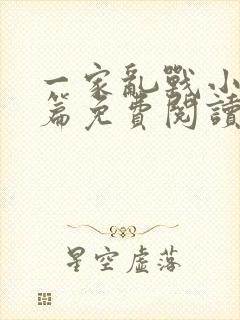 一家亂戰小
篇免費閱讀
星空虛落